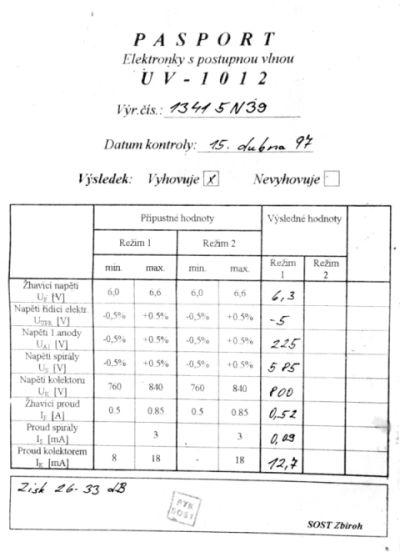 PASPORT
Elektronky s postupnou vlnou
UV-1012
Výr.čís.: 1341 5N39
Datum kontroly: 15. dubna 97
Výsledek: Vyhovuje x Nevyhovuje
Přípustné hodnoty Výsledné hodnoty
Režim 1 Režim 2 Režim 1 Režim 2
min. max. min. max.
Žhavicí napětí UF [V] 6,0 6,6 6,0 6,6 6,3
Napětí řídicí elektr. [V] -0,5% +0.5% -0,5% +0.5% -5
Napětí 1.anody UA1 [V] -0,5% +0.5% -0,5% +0.5% 225
Napětí spirály US [V] -0,5% +0.5% -0,5% +0.5% 585
Napětí kolektoru UK [V] 760 840 760 840 800
Žhavicí proud IF [A] 0.5 0.85 0.5 0.85 0,52
Proud spirály IS [mA] 3 3 0,09
Proud kolektorem IK [mA] 8 18 - 18 12,7
Zisk 26-33 dB
SOST
SOST Zbiroh